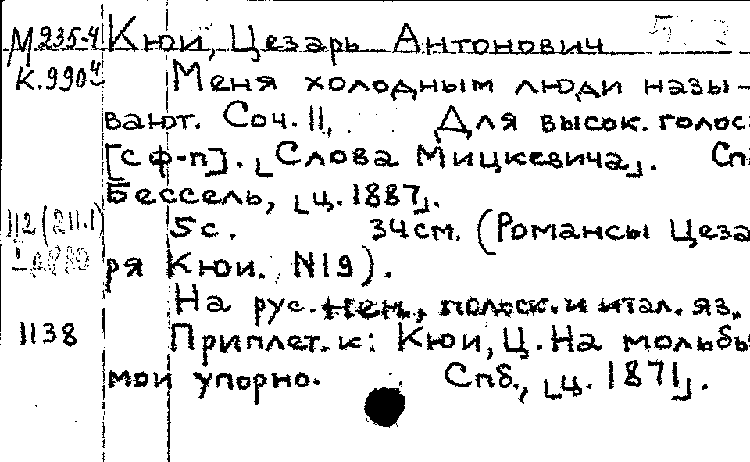 М 235-4 Кюи, Цезарь Антонович
К. 990ч Меня холодным люди назы-
вают. Соч. 11, Для высок. голос
[с ф-п]. [Слова Мицкевича]. Сп
Бессель, [ц. 1887].
5 с. 34 см. (Романсы Цеза
ря Кюи. N 19).
На рус. нем., польск. и итал. яз.
1138 Приплет. к: Кюи, Ц. На мольбы
мои упорно. Спб., [ц. 1871].